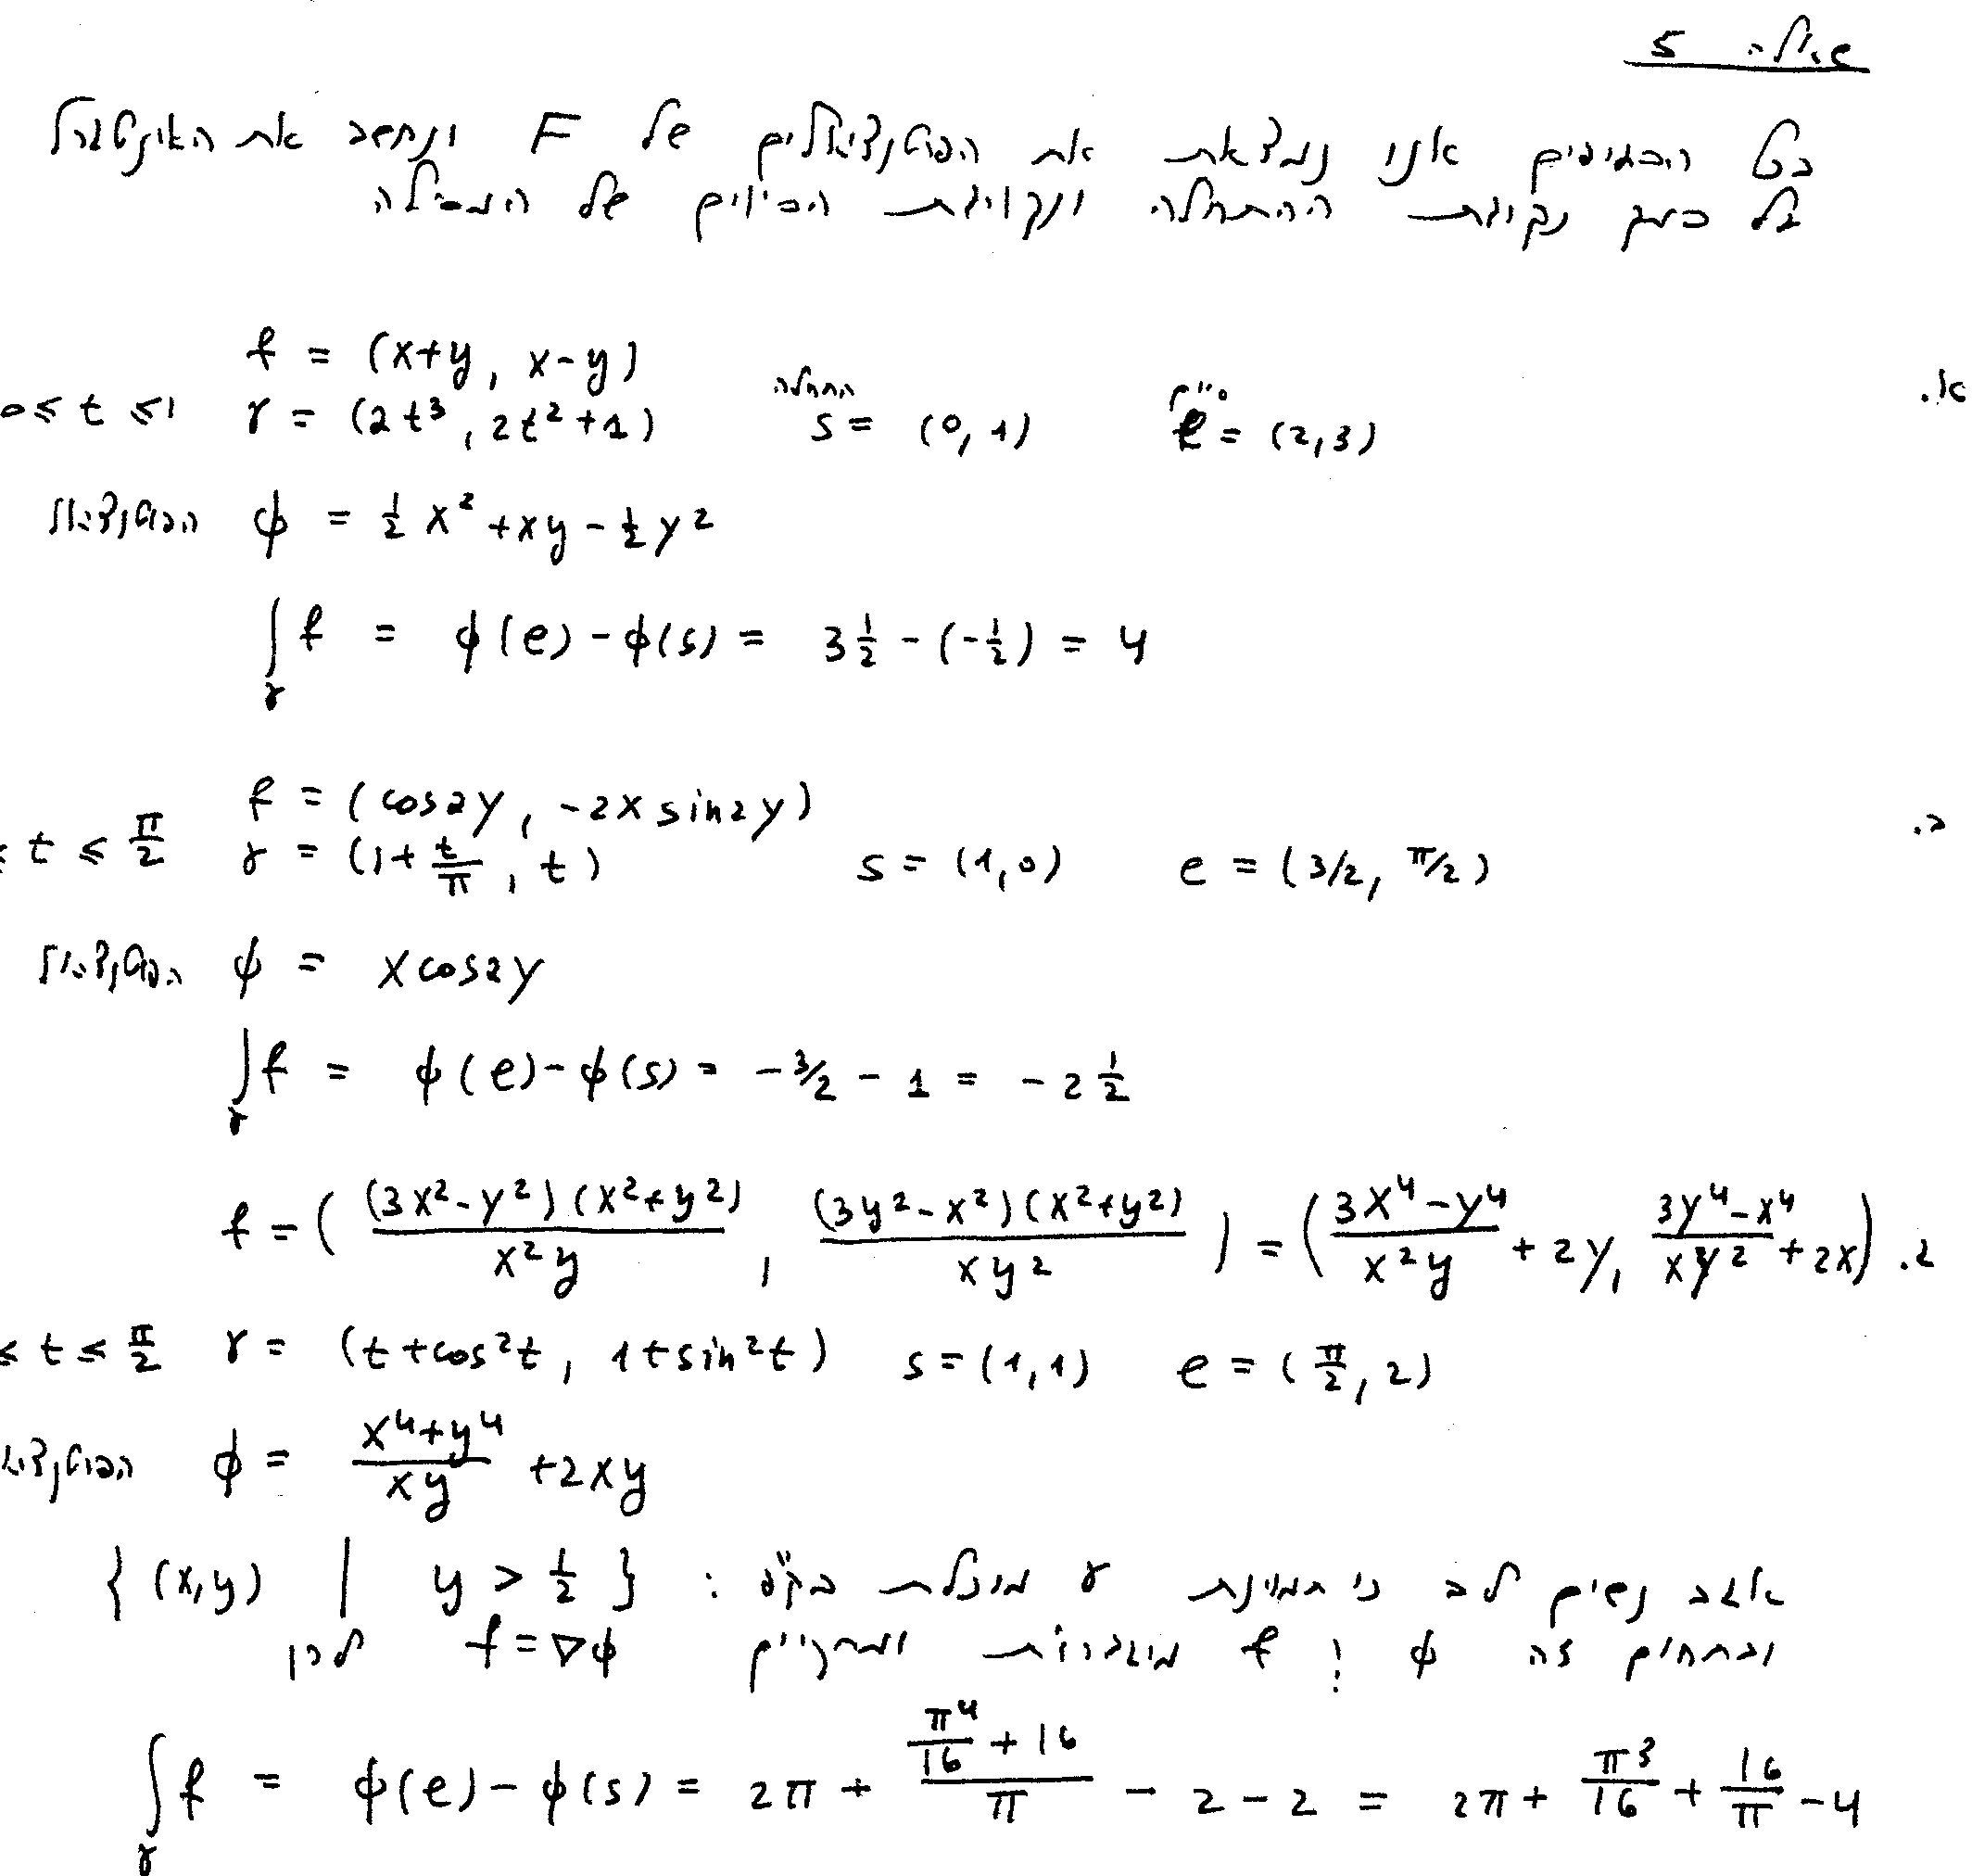 שאלה 5
בכל הסעיפים אנו נמצאת את הפוטנציאלים של F ונחשב את האינטגרל
על סמך נקודת ההתחלה ונקודת הסיום של המסילה
א. f = (x+y, x-y)
0 ≤ t ≤ 1 γ = (2t³, 2t²+1) התחלה s = (0,1) סיום e = (2,3)
הפוטנציאל φ = ½x² + xy - ½y²
∫_γ f = φ(e) - φ(s) = 3½ - (-½) = 4
ב. f = (cos2y, -2x sin2y)
≤ t ≤ π/2 γ = (1 + t/π, t) s = (1,0) e = (3/2, π/2)
הפוטנציאל φ = x cos2y
∫_γ f = φ(e) - φ(s) = -3/2 - 1 = -2½
ג. f = ( (3x²-y²)(x²+y²) / x²y , (3y²-x²)(x²+y²) / xy² ) = ( (3x⁴-y⁴) / x²y + 2y, (3y⁴-x⁴) / xy² + 2x )
≤ t ≤ π/2 γ = (t+cos²t, 1+sin²t) s = (1,1) e = (π/2, 2)
הפוטנציא φ = (x⁴+y⁴) / xy + 2xy
אגב נשים לב כי תמונת γ מוכלת בקס : { (x,y) | y > ½ }
ובתחום זה φ ו f מוגדרות ומתקיים f = ∇φ לכן
∫_γ f = φ(e) - φ(s) = 2π + (π⁴/16 + 16) / π - 2 - 2 = 2π + π³/16 + 16/π - 4